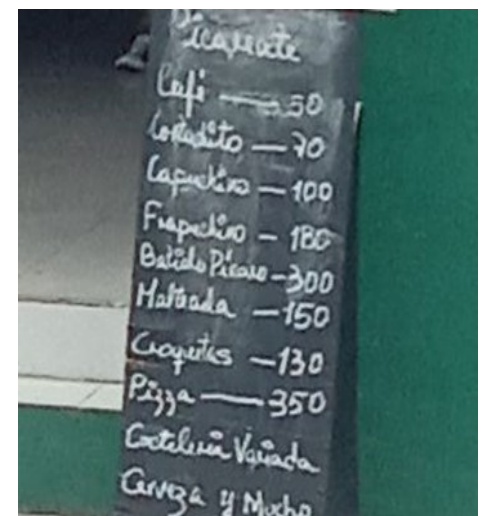 Picamente
Café — 50
Cortadito — 70
Capuchino — 100
Frapuchino — 180
Batido Pícaro — 300
Malteada — 150
Croquetas — 130
Pizza — 350
Coctelería Variada
Cerveza y Mucho